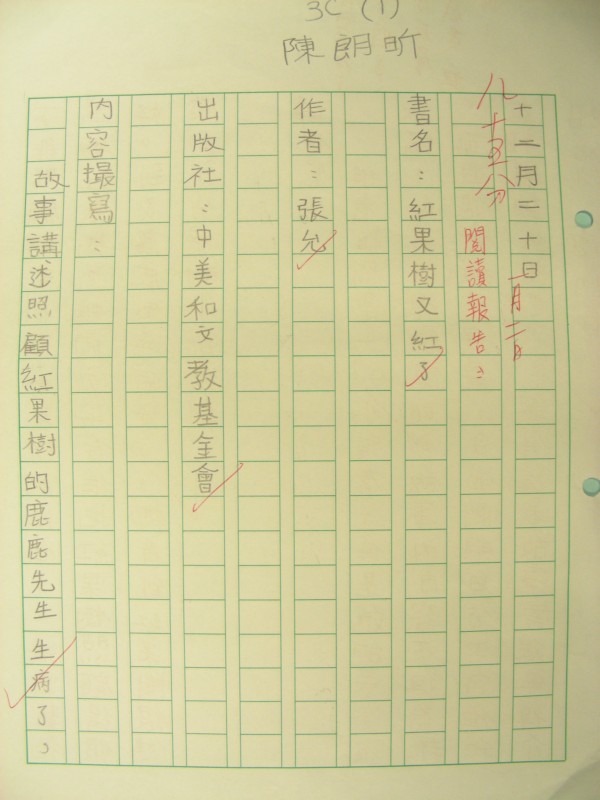 3C (1)
陳朗昕
十二月二十日
一月二日
八十五分
閱讀報告：
書名：紅果樹又紅了
作者：張允
出版社：中美和文教基金會
內容撮寫：
故事講述照顧紅果樹的鹿鹿先生生病了，